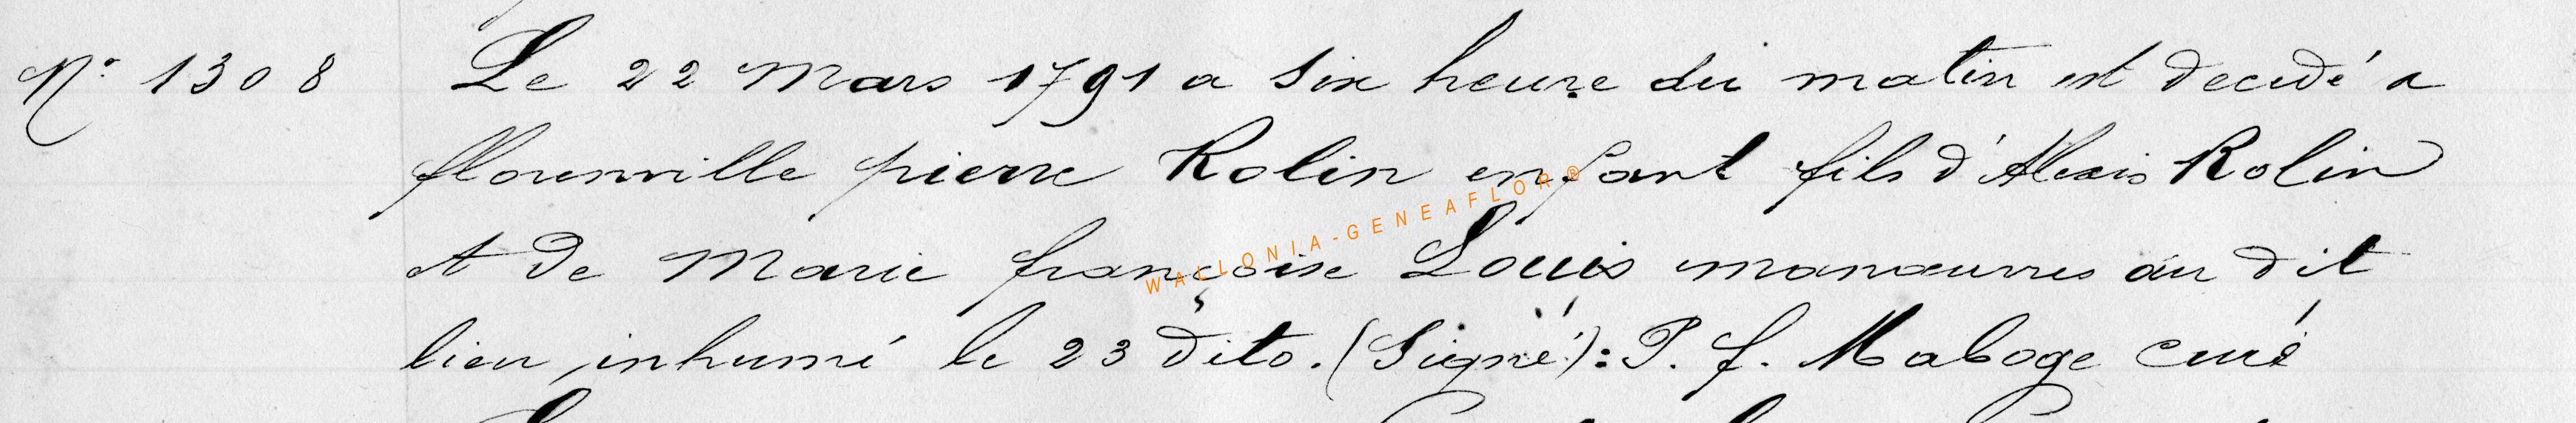 N° 1308 Le 22 Mars 1791 a six heure du matin est decedé a
florenville pierre Rolin enfant fils d'Alexis Rolin
et de Marie françoise Louis manœuvres au dit
lieu, inhumé le 23 dito. (Signé): P. f. Maboge curé
WALLONIA-GENEAFLOR®